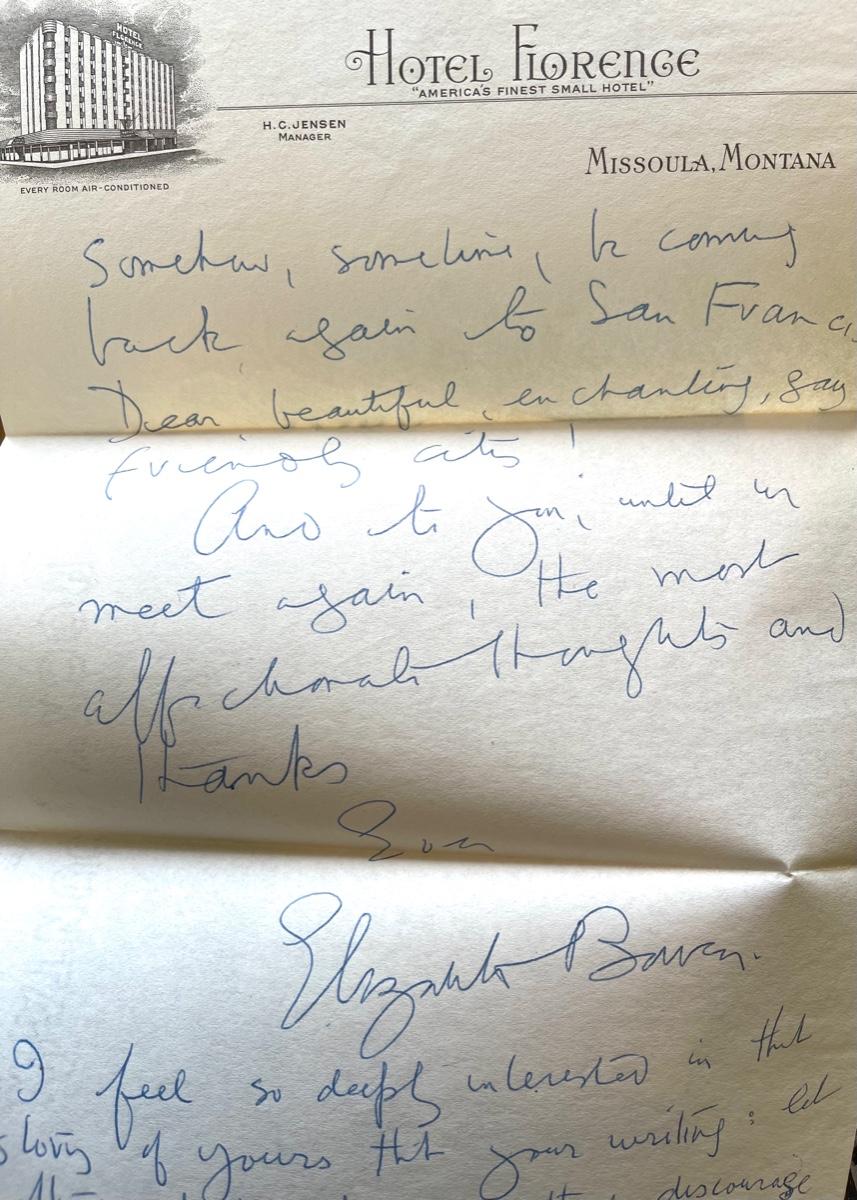 HOTEL FLORENCE
HOTEL FLORENCE
"AMERICA'S FINEST SMALL HOTEL"
H.C. JENSEN
MANAGER
MISSOULA, MONTANA
EVERY ROOM AIR-CONDITIONED
Somehow, sometime, be coming
back again to San Franci
Dear beautiful, enchanting, gay
friendly city!
And to you, until we
meet again, the most
affectionate thoughts and
thanks
Ever
Elizabeth Bowen.
I feel so deeply interested in that
story of yours that your writing: let
discourage